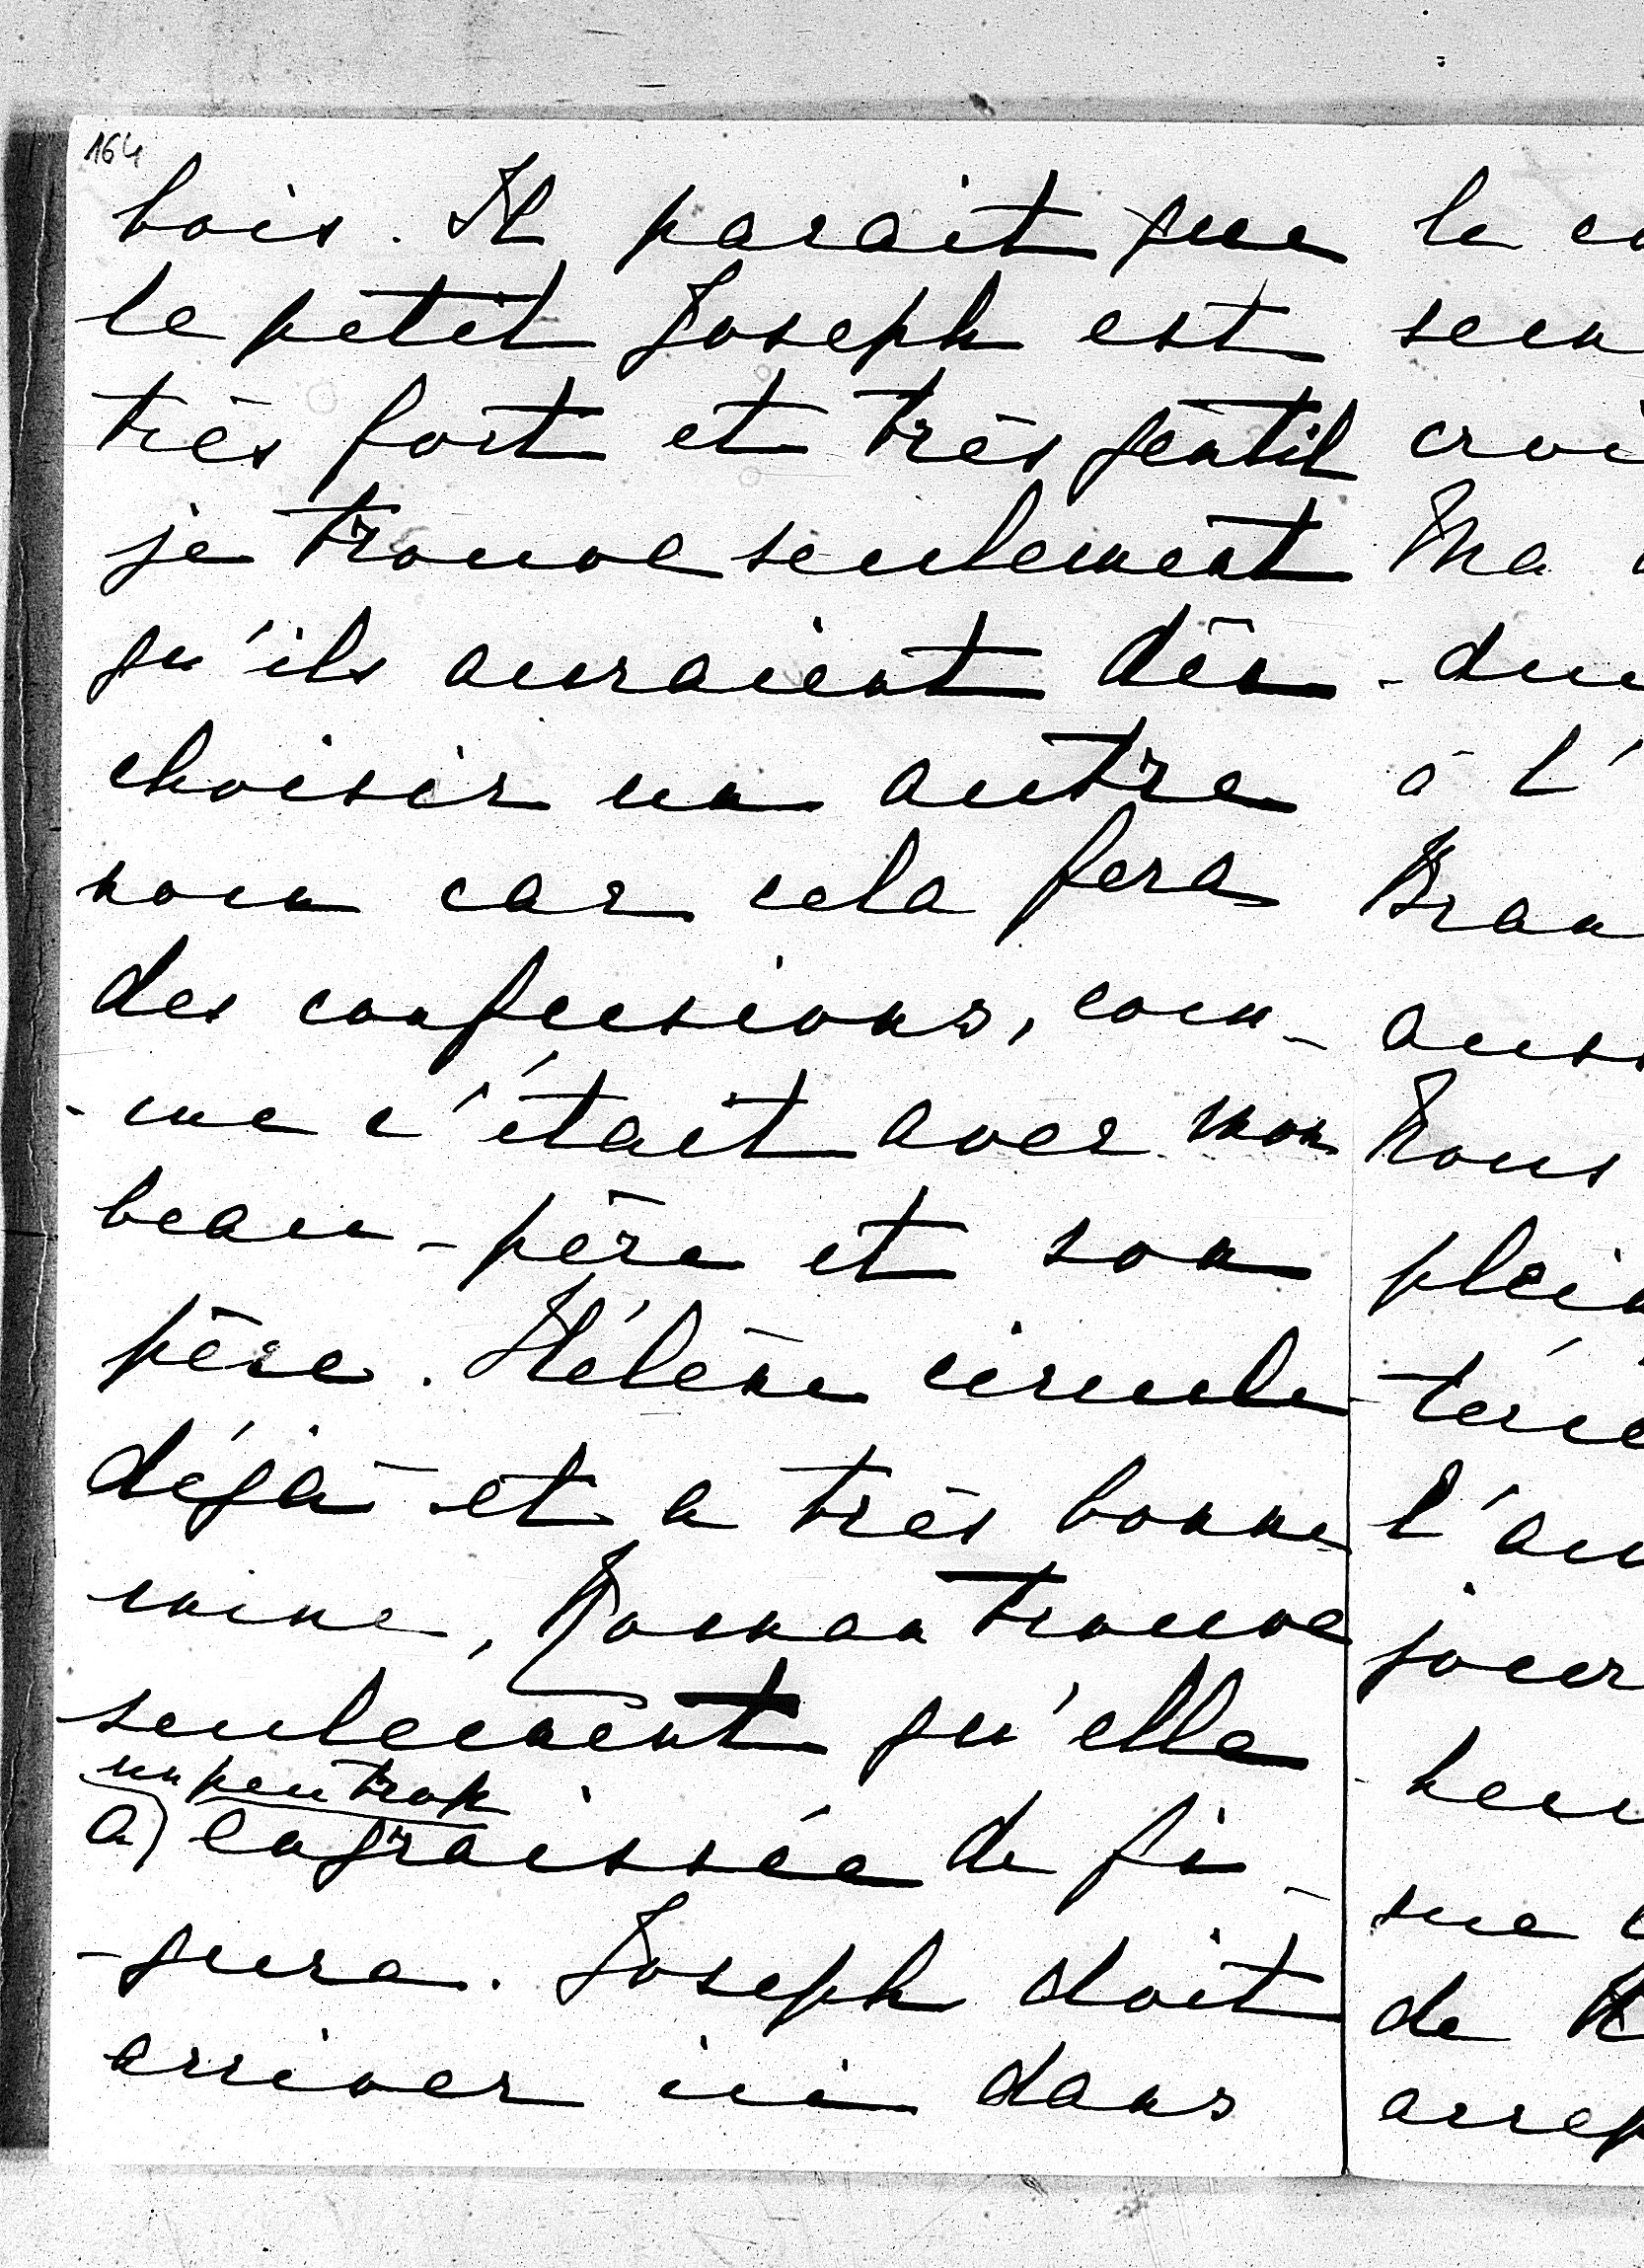 164
bois. Il parait que
le petit Joseph est
très fort et très gentil
je trouve seulement
qu'ils auraient dûn
choisir un autre
nom car cela fera
des confusions, com-
-me c'était avec mon
beau-père et son
père. Hélène circule
déjà et a très bonne
mine, trouve
seulement qu'elle
un peu trop
a engraissée de fi-
-gure. Joseph doit
arriver ici dans
le
croi
Ma
à l'
Nous
plein
l'au
jour
de